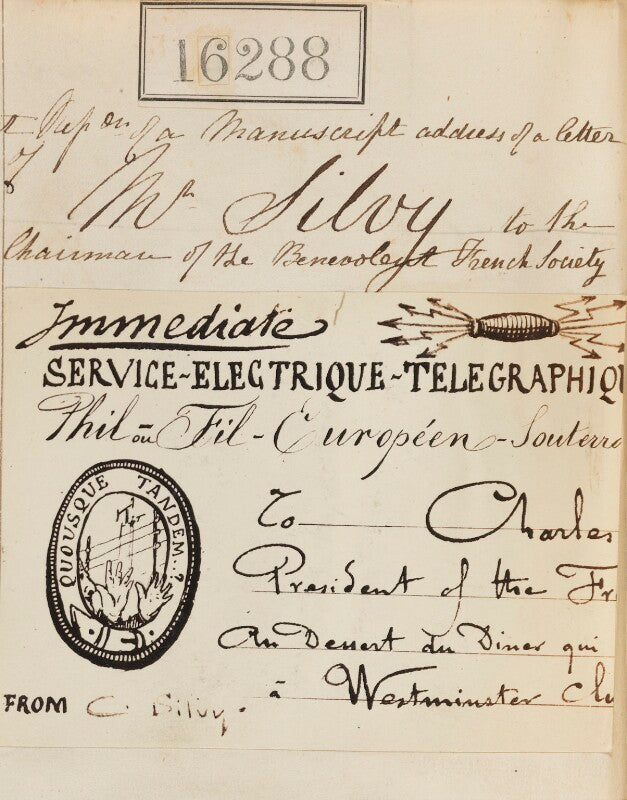 16288
Repon of a Manuscript address of a letter
of
Mr Silvy to the
Chairman of the Benevolent French Society
Immediate
SERVICE-ELECTRIQUE-TELEGRAPHIQU
Phil ou Fil-Européen-Souterra
QUOUSQUE TANDEM..?
To Charles
President of the Fr
Au Dessert du Diner qui
à Westminster Clu
FROM C. Silvy.